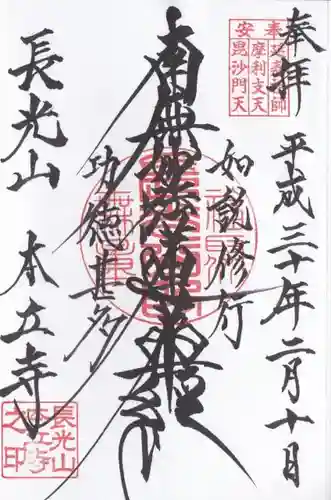 奉拝
平成三十年二月十日
如説修行
南無妙法蓮華経
功徳甚多
長光山 本立寺
安奉
摩利支天
毘沙門天
長光山
本立寺
之印